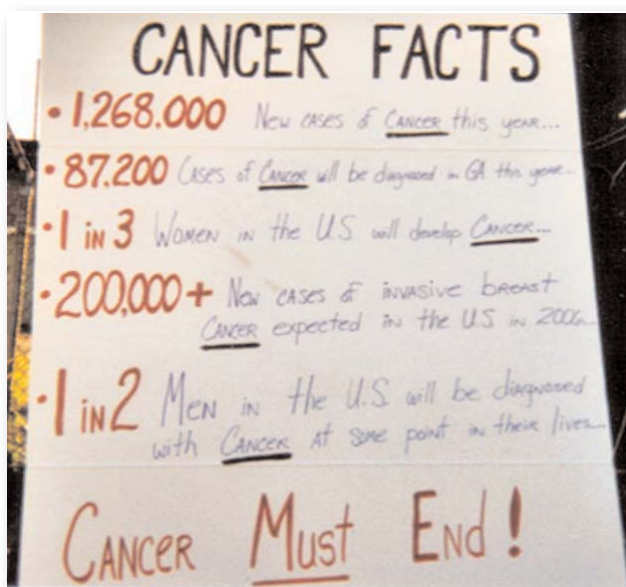 CANCER FACTS
• 1,268.000 New cases of CANCER this year...
• 87.200 Cases of CANCER will be diagnosed in GA this year...
• 1 in 3 Women in the US will develop CANCER...
• 200,000+ New cases of invasive breast
CANCER expected in the US in 2006...
• 1 in 2 Men in the U.S will be diagnosed
with CANCER at some point in their lives...
CANCER Must End!